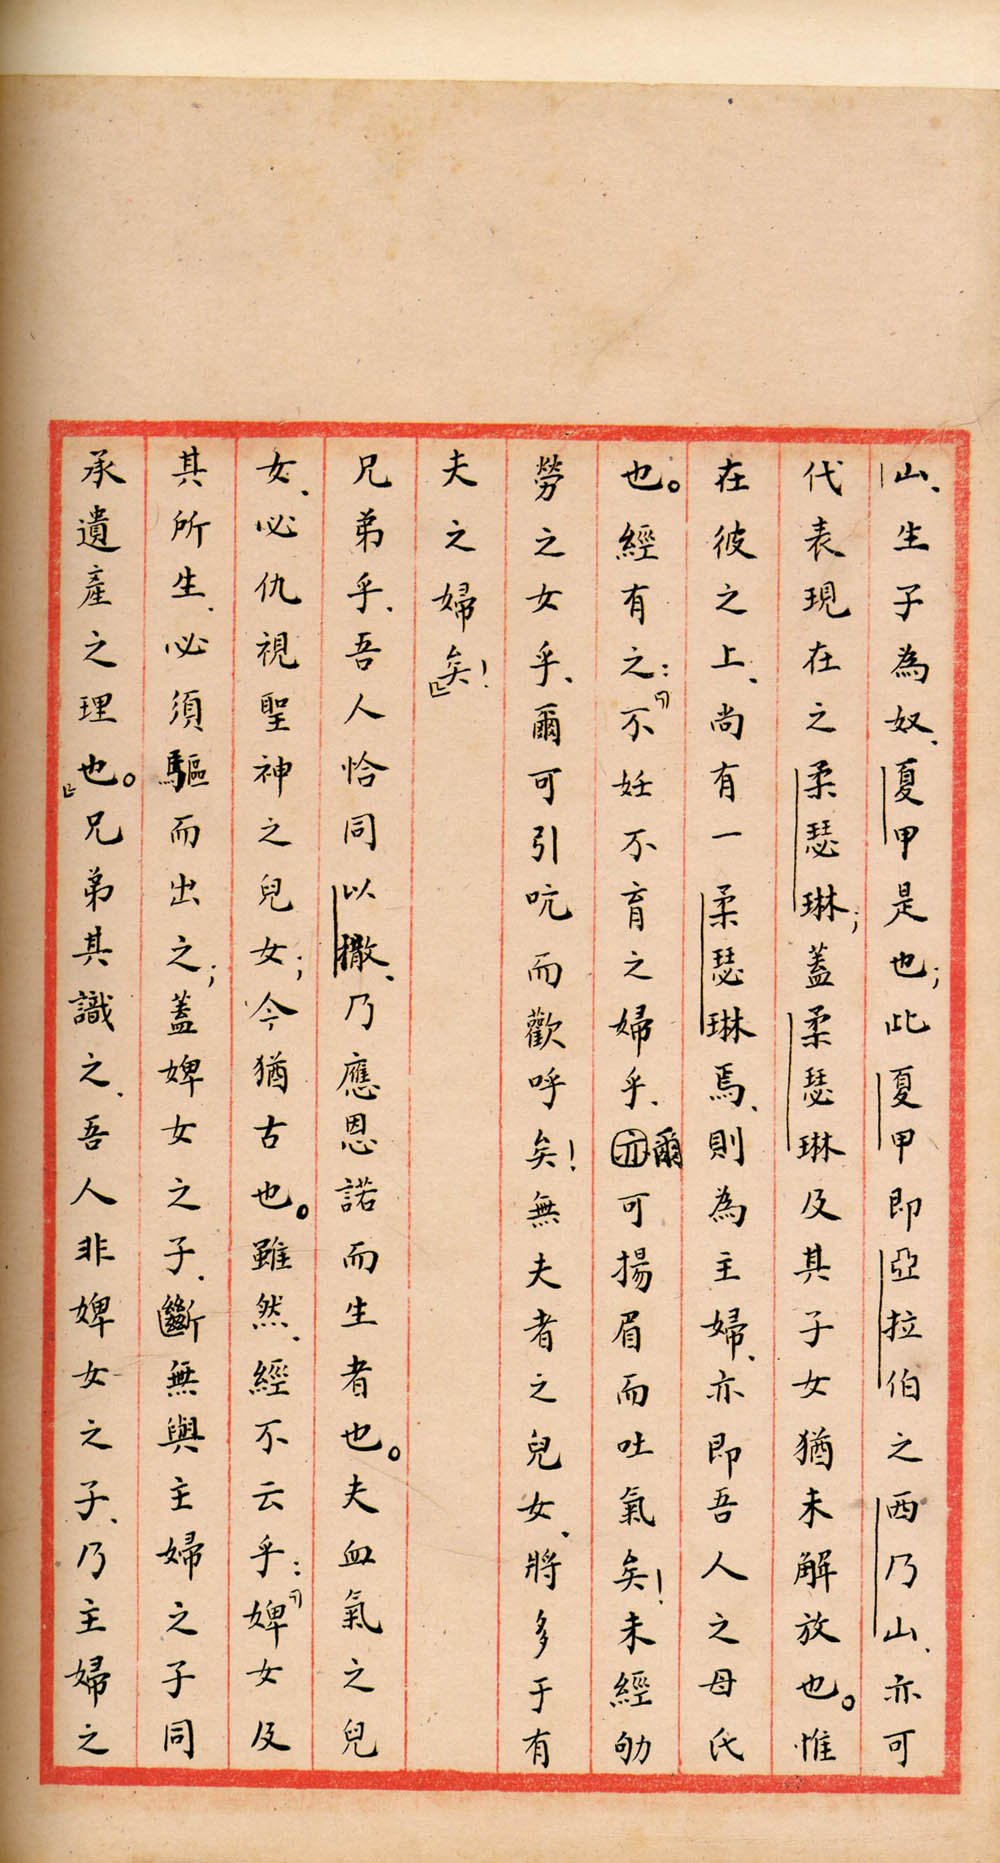 山、生子為奴、夏甲是也；此夏甲即亞拉伯之西乃山、亦可
代表現在之柔瑟琳；蓋柔瑟琳及其子女猶未解放也。惟
在彼之上、尚有一柔瑟琳焉、則為主婦、亦即吾人之母氏
也。經有之：「不妊不育之婦乎、爾可揚眉而吐氣矣！未經劬
勞之女乎、爾可引吭而歡呼矣！無夫者之兒女、將多于有
夫之婦矣！」
兄弟乎、吾人恰同以撒、乃應恩諾而生者也。夫血氣之兒
女、必仇視聖神之兒女；今猶古也。雖然、經不云乎：「婢女及
其所生、必須驅而出之；蓋婢女之子、斷無與主婦之子同
承遺產之理也。」兄弟其識之、吾人非婢女之子、乃主婦之